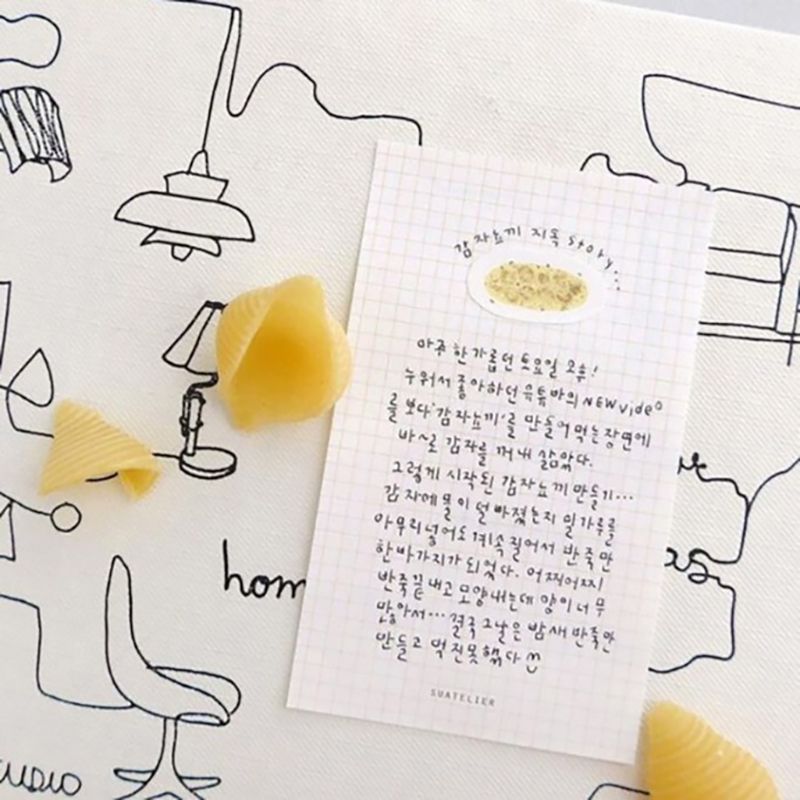 감자뇨끼 지옥 story...
아주 한가롭던 토요일 오후!
누워서 좋아하던 유튜바의 NEW video
를 보다 '감자뇨끼'를 만들어 먹는 장면에
바~로 감자를 꺼내 삶았다.
그렇게 시작된 감자뇨끼 만들기...
감자에 물이 덜 빠졌는지 밀가루를
아무리 넣어도 계속 질어서 반죽만
한바가지가 되었다. 어찌어찌
반죽 끝내고 모양내는데 양이 너무
많아서... 결국 그날은 밤새 반죽만
만들고 먹진 못했다
SUATELIER
hom
as